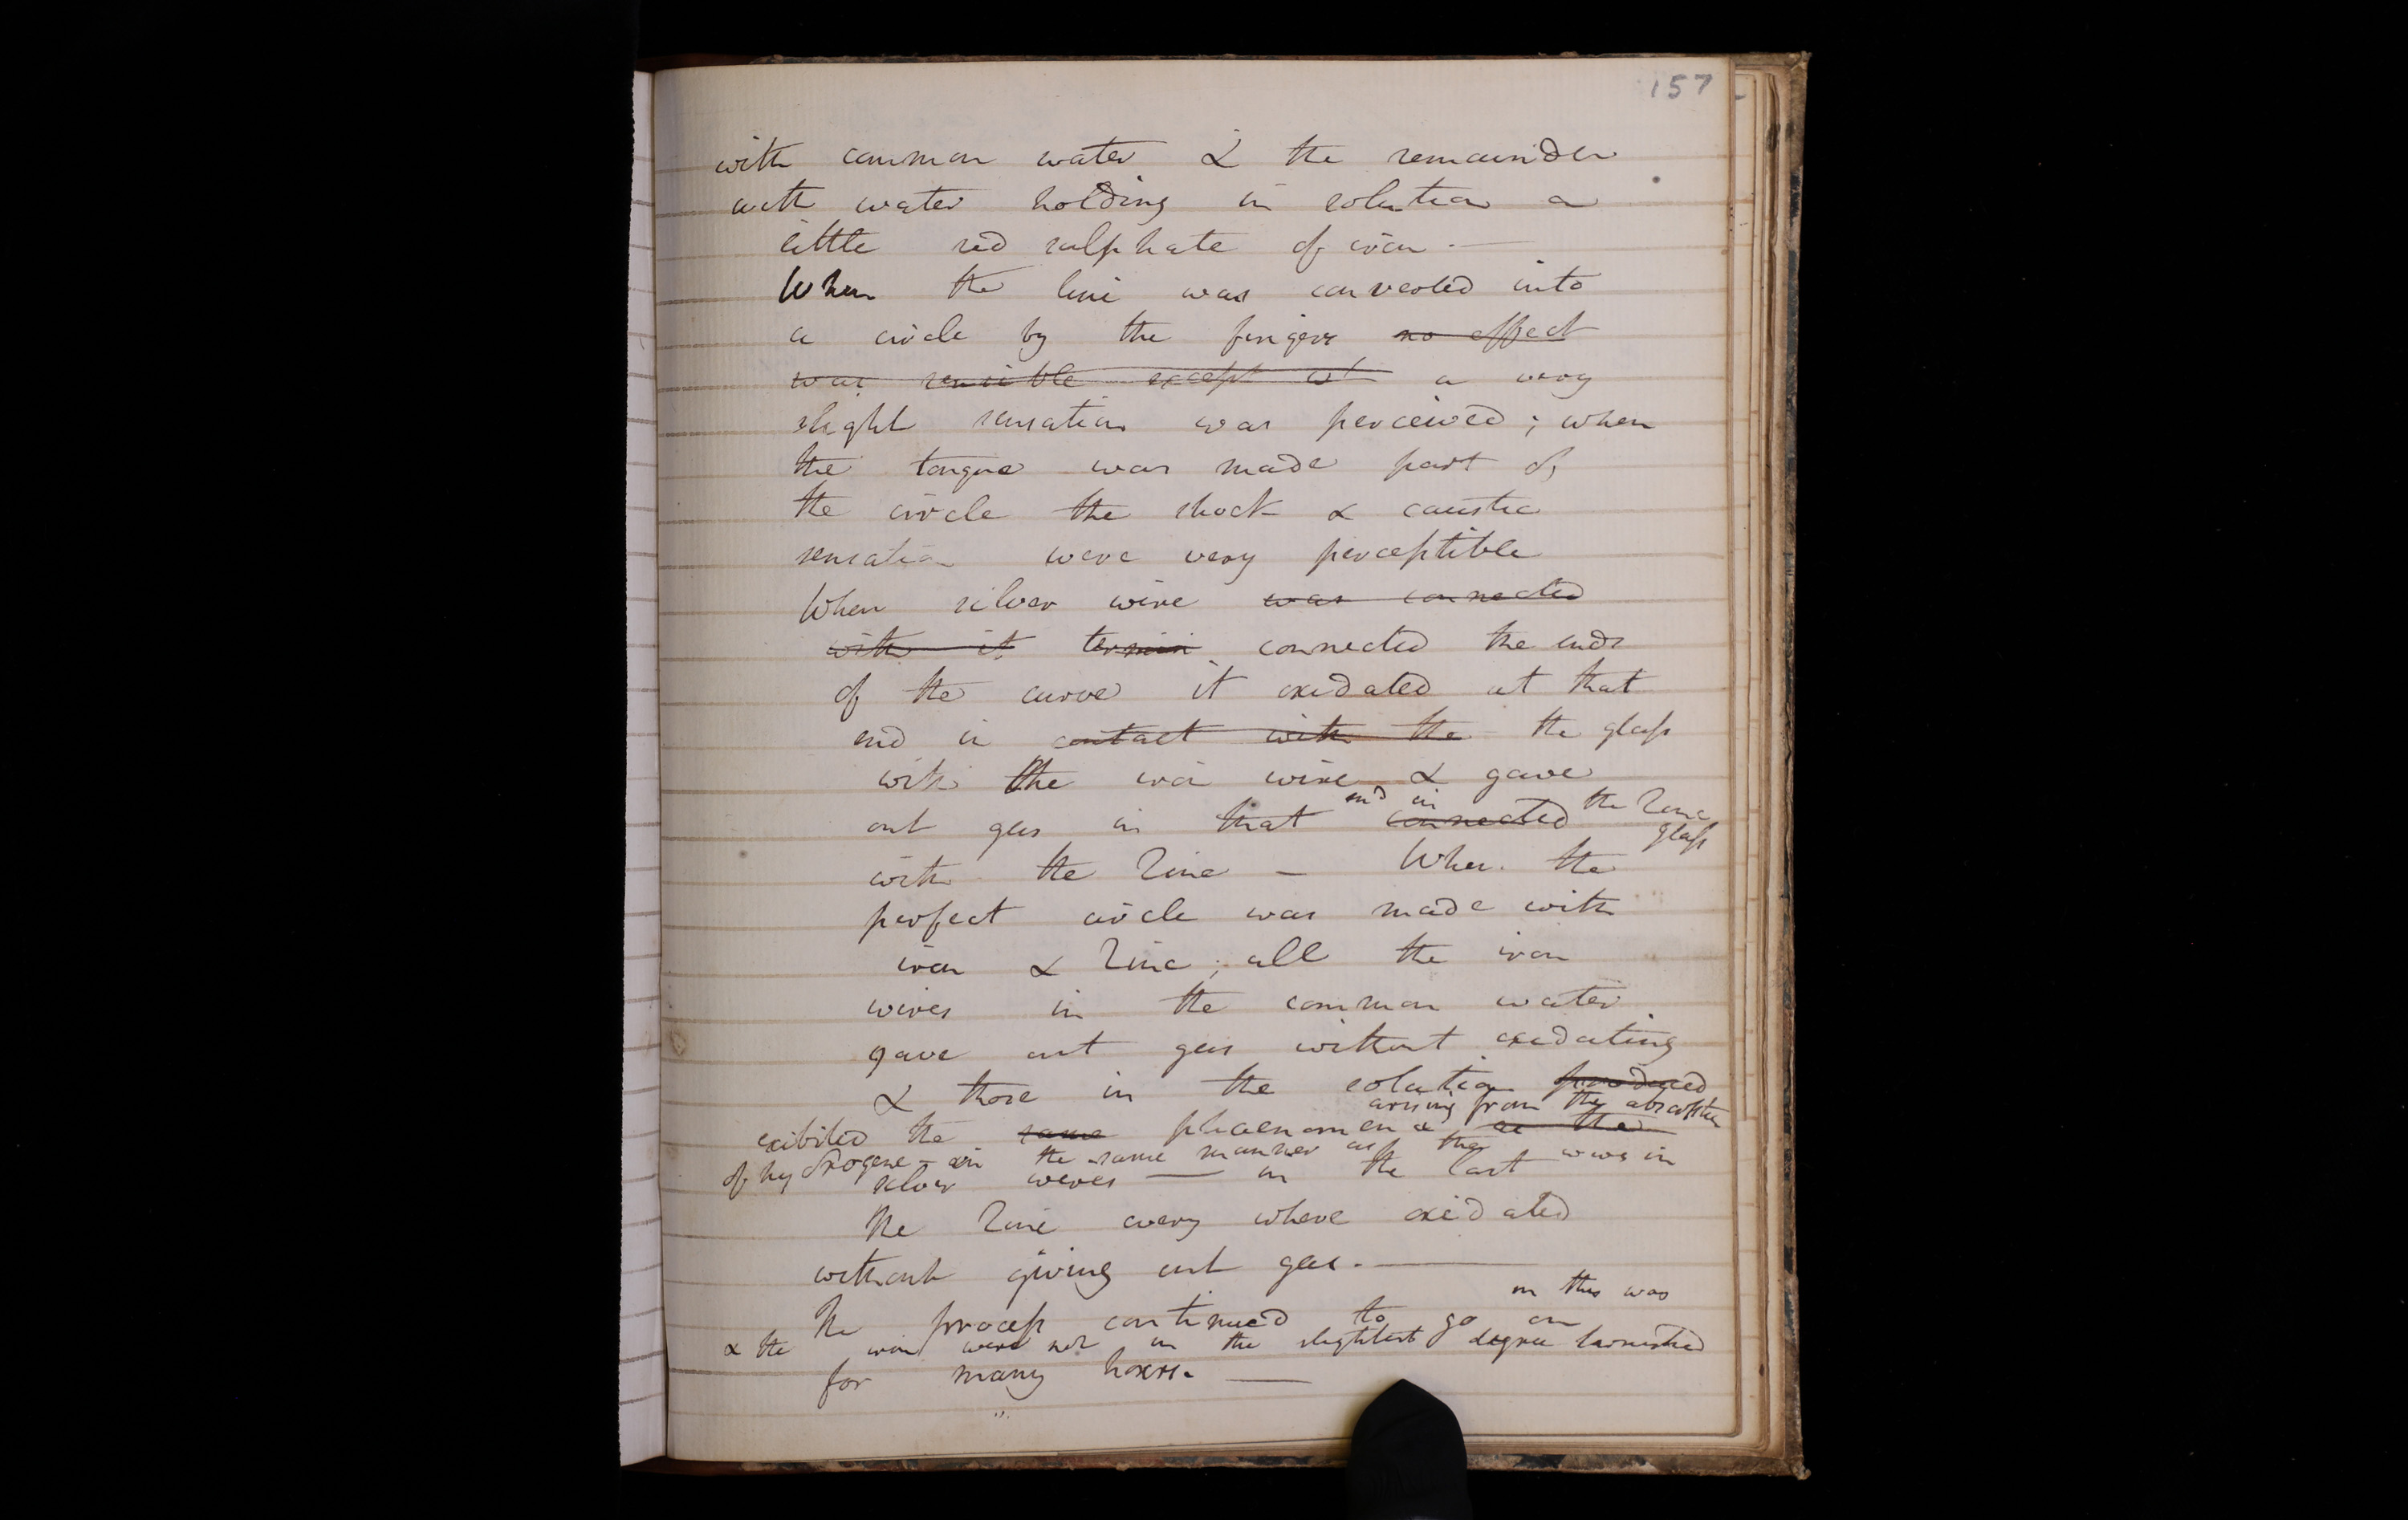 157
with common water & the remainder
with water holding in solution a
little red sulphate of iron. —
When the line was converted into
a circle by the fingers no effect
was sensible except wt a very
slight sensation was perceived; when
the tongue was made part of
the circle the shock & caustic
sensation were very perceptible
When silver wire was connected
with it termin connected the ends
of the curve it oxidated at that
end in contact with the the glass
with the iron wire & gave
end in the zinc
out gas in that connected glass
with the zinc — When the
perfect circle was made with
iron & zinc; all the iron
wires in the common water
gave out gas without oxidating
& those in the solution produced
arising from the absorption
exibited the same phaenomena as the
of hydrogene – in the same manner as the wires in
silver wires — in the last
the zinc every where oxidated
without giving out gas. —
in this was
The process continued to go on
& the iron were not in the slightest degree tarnished
for many hours. —